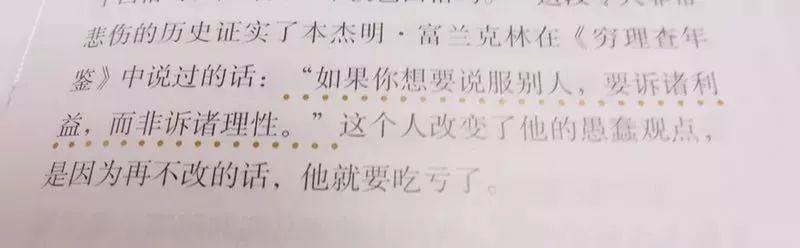 悲伤的历史证实了本杰明·富兰克林在《穷理查年
鉴》中说过的话：“如果你想要说服别人，要诉诸利
益，而非诉诸理性。”这个人改变了他的愚蠢观点，
是因为再不改的话，他就要吃亏了。